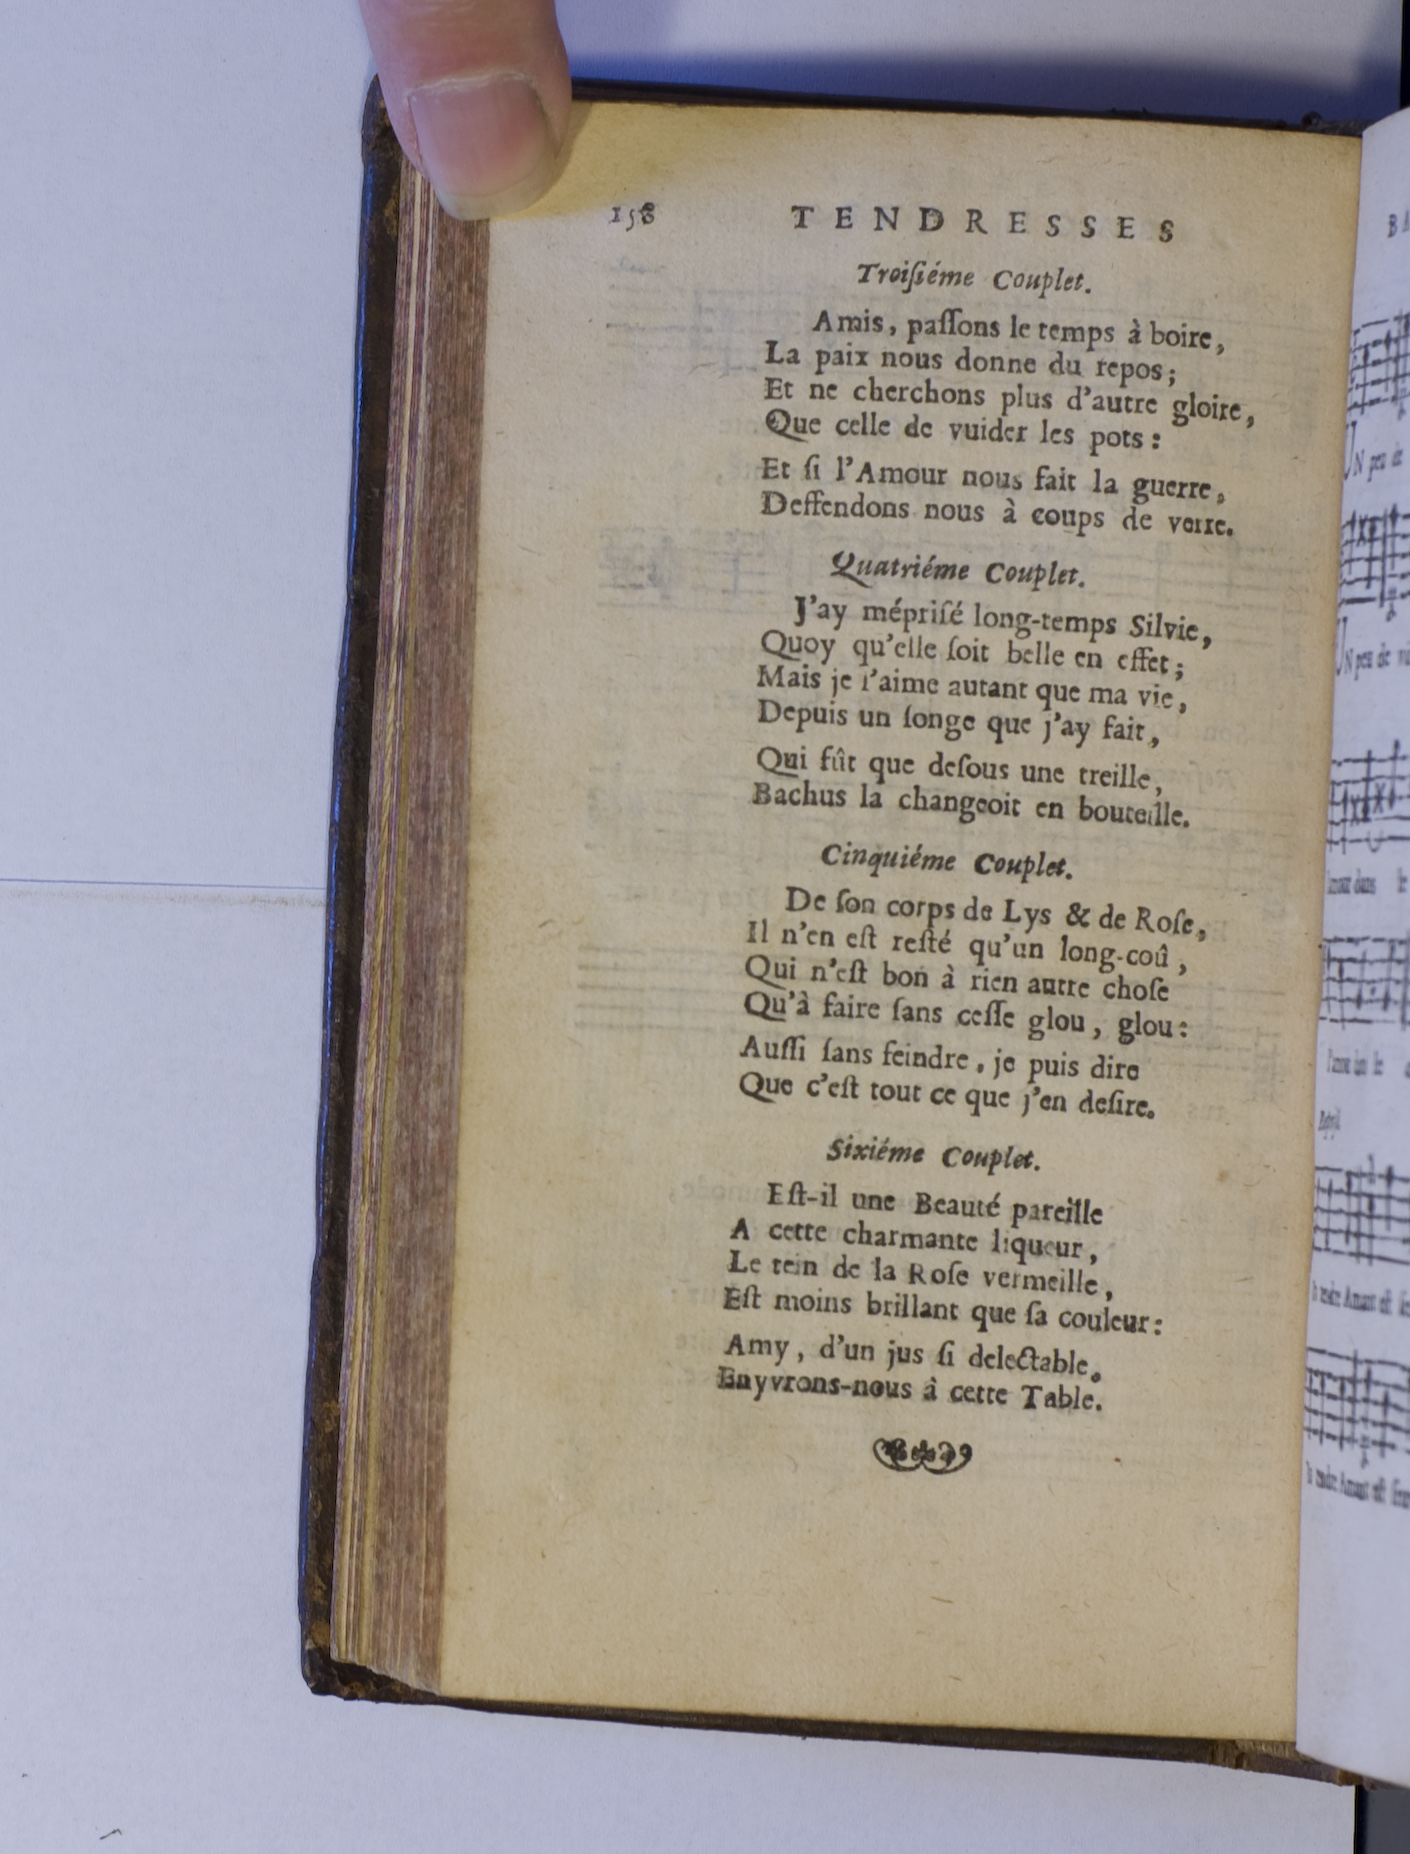 158 TENDRESSES
Troiſiéme Couplet.
Amis, paſſons le temps à boire,
La paix nous donne du repos;
Et ne cherchons plus d'autre gloire,
Que celle de vuider les pots:
Et ſi l'Amour nous fait la guerre,
Deffendons nous à coups de verre.
Quatriéme Couplet.
J'ay mépriſé long-temps Silvie,
Quoy qu'elle ſoit belle en effet;
Mais je l'aime autant que ma vie,
Depuis un ſonge que j'ay fait,
Qui fût que deſous une treille,
Bachus la changeoit en bouteille.
Cinquiéme Couplet.
De ſon corps de Lys & de Roſe,
Il n'en eſt reſté qu'un long-coû,
Qui n'eſt bon à rien autre choſe
Qu'à faire ſans ceſſe glou, glou:
Auſſi ſans feindre, je puis dire
Que c'eſt tout ce que j'en deſire.
Sixiéme Couplet.
Eſt-il une Beauté pareille
A cette charmante liqueur,
Le tein de la Roſe vermeille,
Eſt moins brillant que ſa couleur:
Amy, d'un jus ſi delectable,
Enyvrons-nous à cette Table.
UN peu de
UN peu de
tendre Amant eſt
tendre Amant eſt